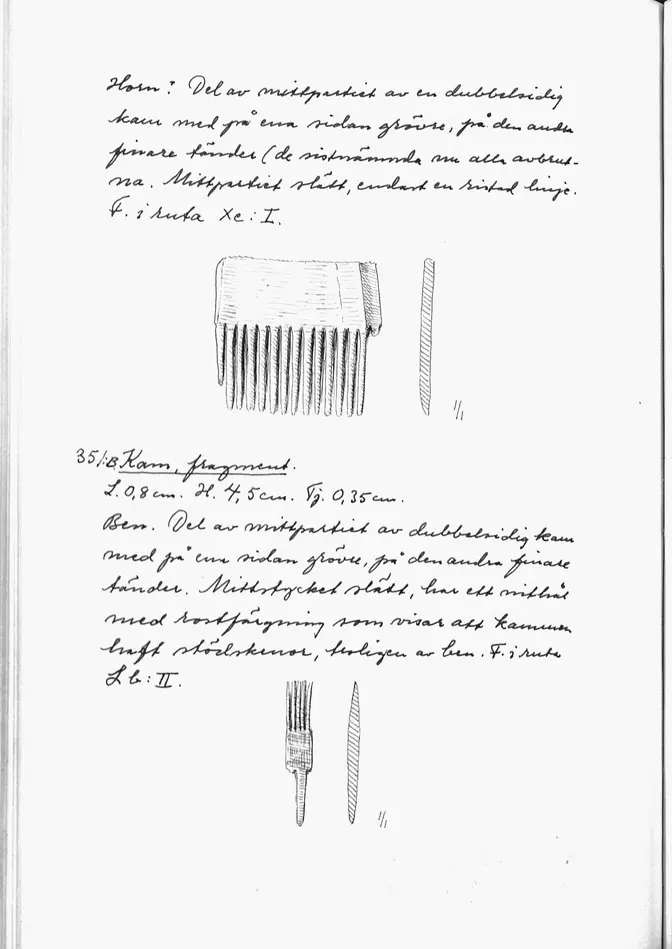 Horn? Del av mittpartiet av en dubbelsidig
kam med på ena sidan grövre, på den andra
finare tänder (de sistnämnda nu alla avbrut-
na. Mittpartiet slätt, endast en ristad linje.
F. i ruta Xc: I.
1/1
351:B Kam, fragment.
L. 0,8 cm. H. 4,5 cm. Tj. 0,35 cm.
Ben. Del av mittpartiet av dubbelsidig kam
med på ena sidan grövre, på den andra finare
tänder. Mittstycket slätt, har ett nithål
med rostfärgning som visar att kammen
haft stödskenor, troligen av ben. F. i ruta
Lb: II.
1/1